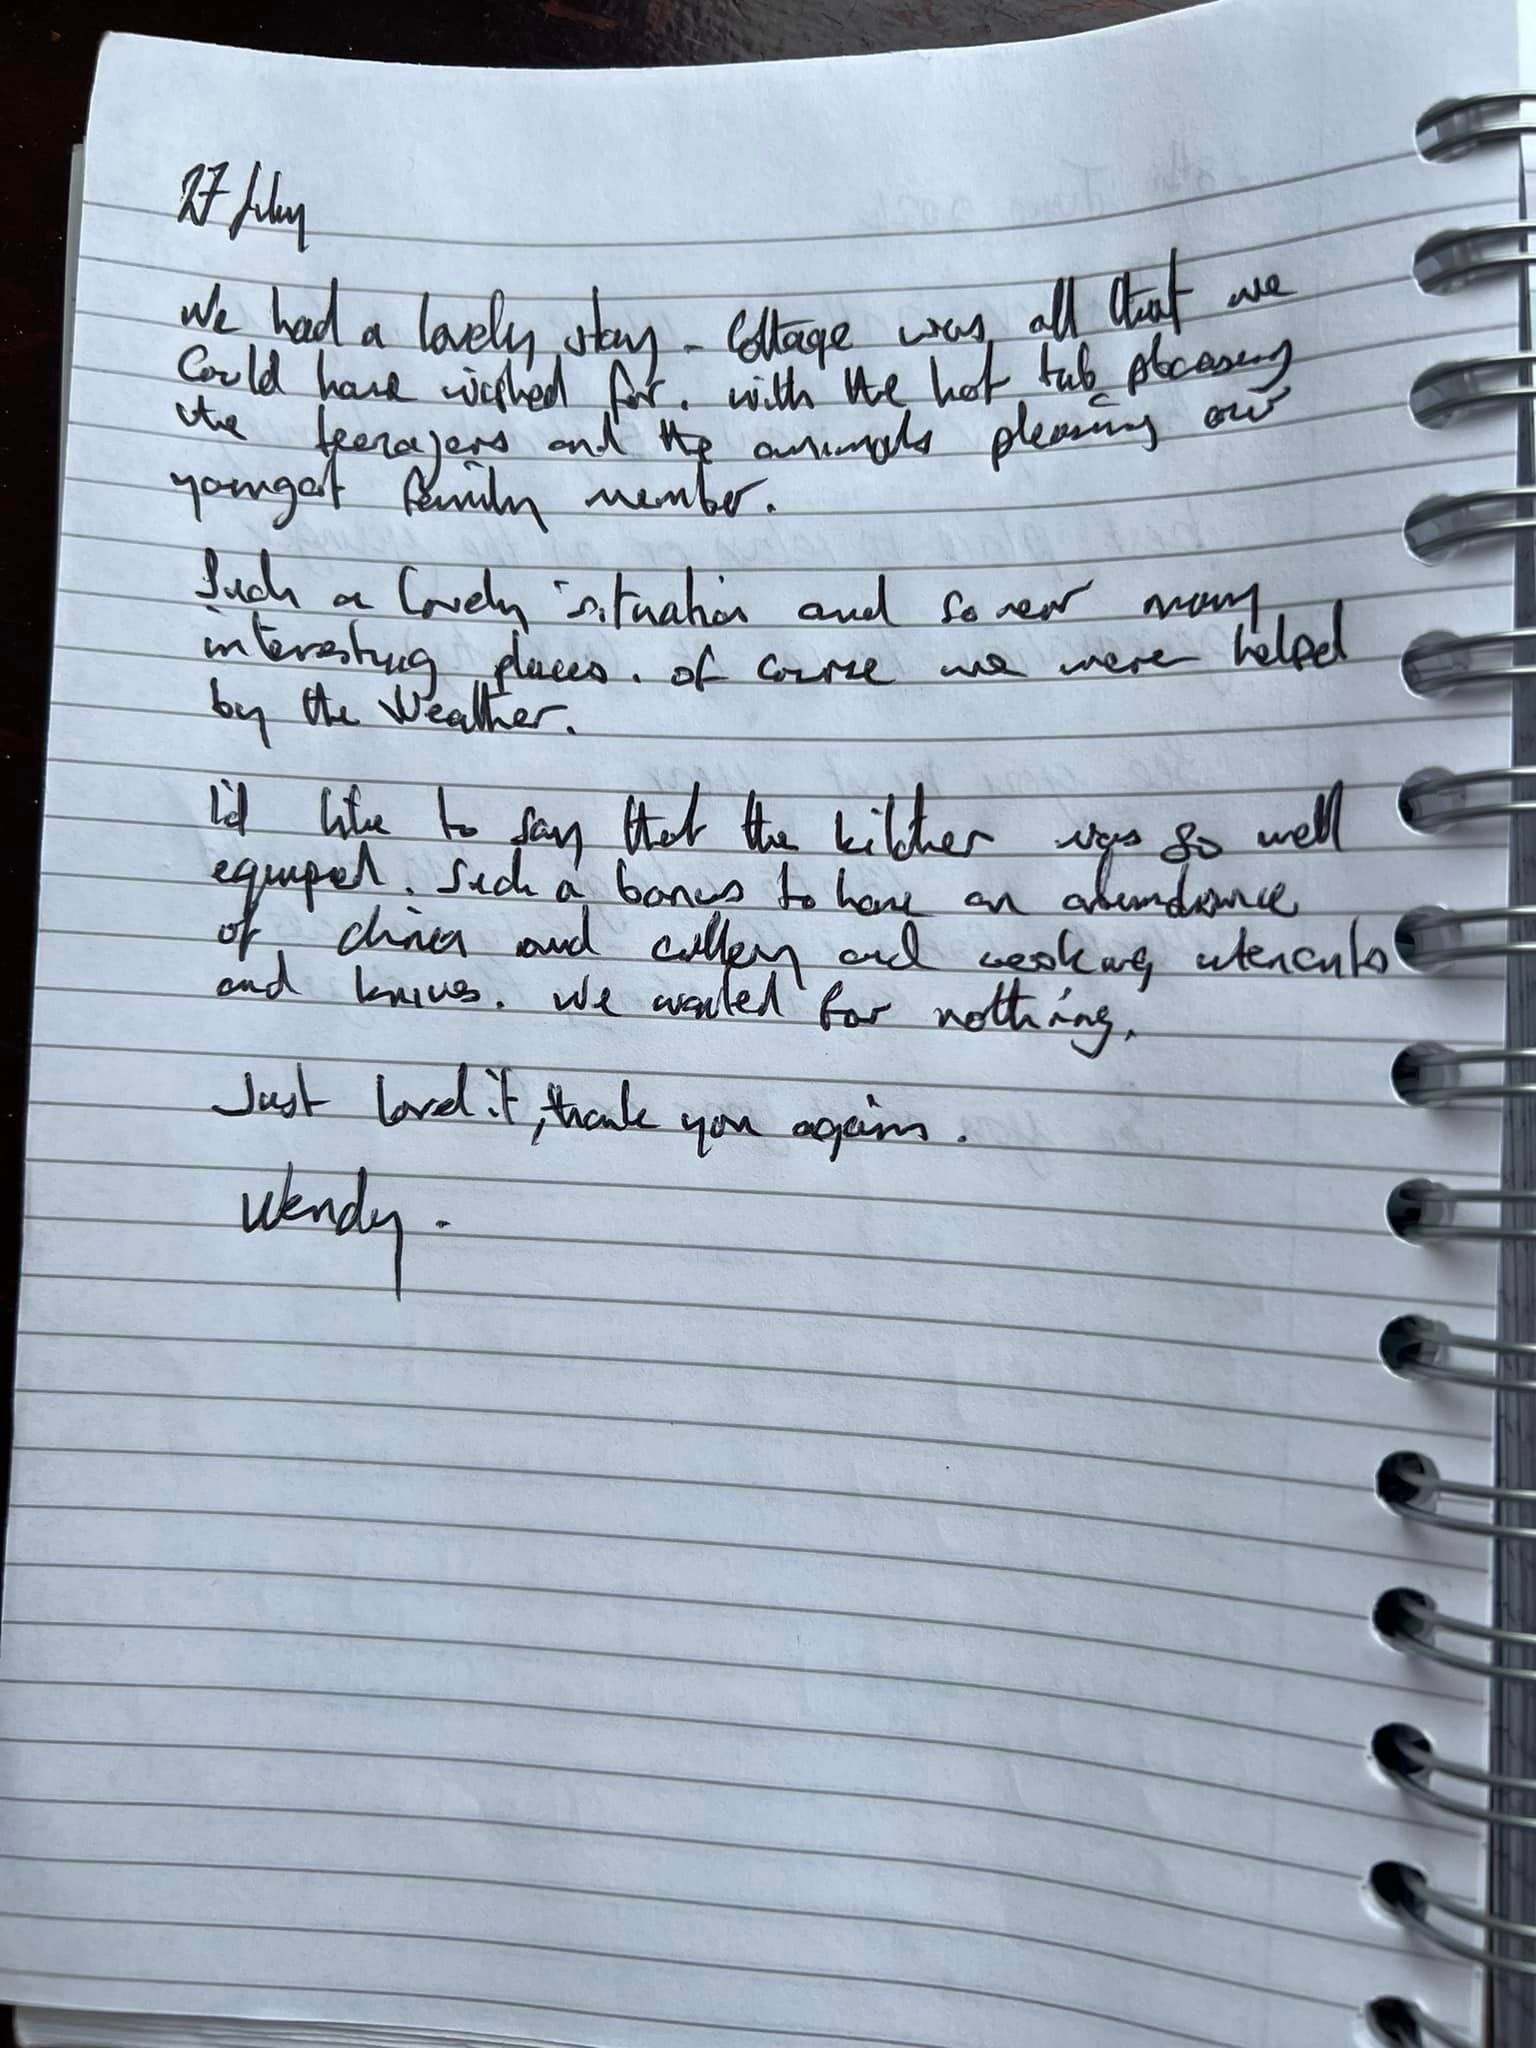 27 July
We had a lovely stay - Cottage was all that we
Could have wished for. with the hot tub pleasing
the teenagers and the animals pleasing our
youngest family member.
Such a lovely situation and so near many
interesting places. of course we were helped
by the Weather.
I'd like to say that the kitchen was so well
equiped. Such a bonus to have an abundance
of china and cutlery and cooking utensils
and knives. We wanted for nothing.
Just loved it, thank you again.
Wendy.